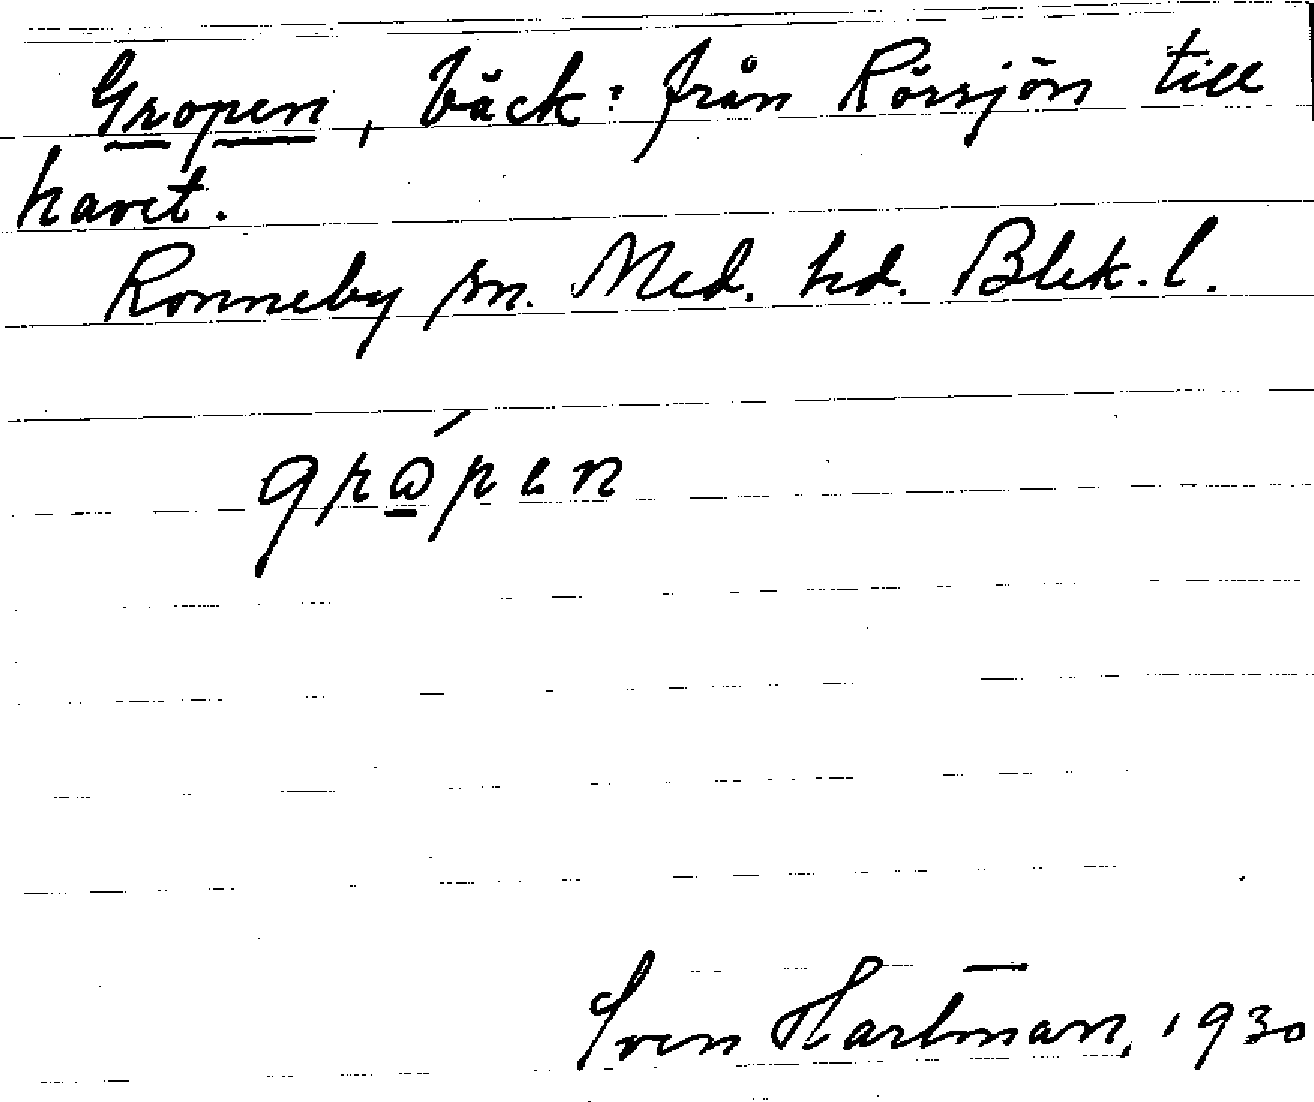 Gropen, bäck: från Rörsjön till
havet.
Ronneby sn. Med. hd. Blek. l.
grώ̲pen
Sven Hartman, 1930